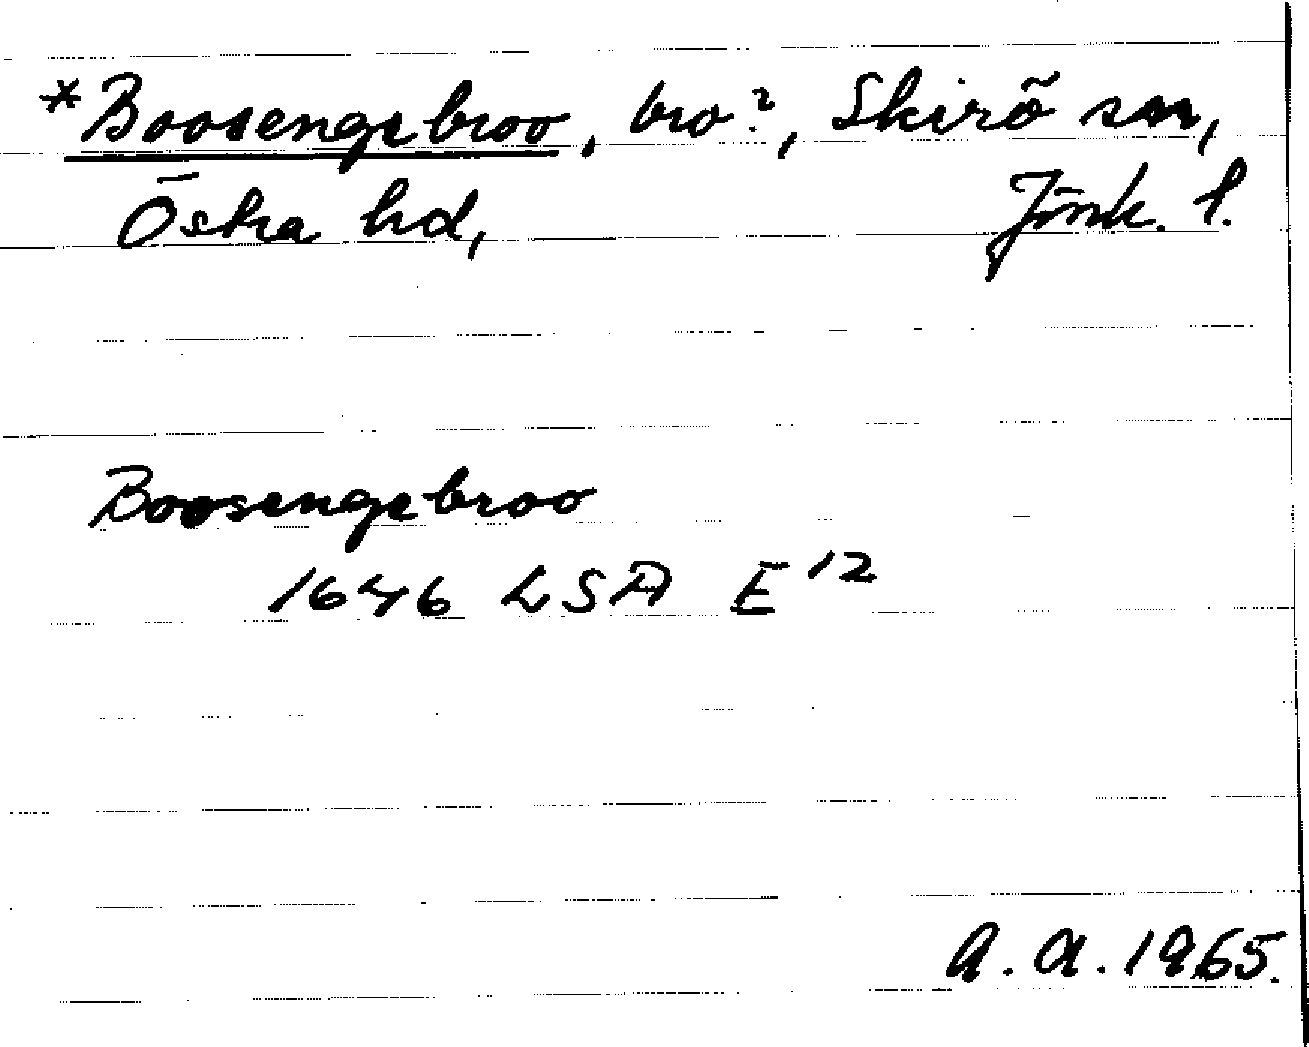 *Boosengebroo, bro?, Skirö sn,
Östra hd, Jönk. l.
Boosengebroo
1646 LSA E 12
A. A. 1965.